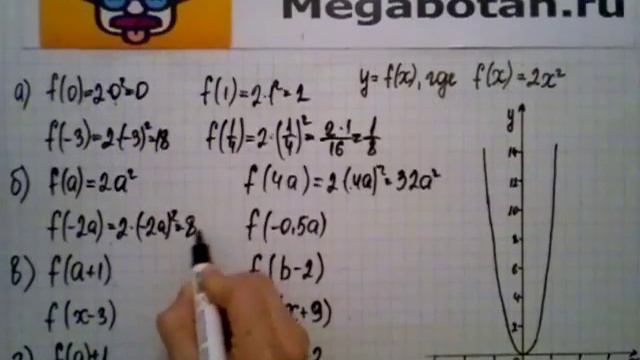 Megabotan.ru
y=f(x), где f(x)=2x²
а) f(0)=2·0²=0 f(1)=2·1²=2
f(-3)=2·(-3)²=18 f(1/4)=2·(1/4)²=2·1/16=1/8
б) f(a)=2a² f(4a)=2·(4a)²=32a²
f(-2a)=2·(-2a)²=8 f(-0,5a)
в) f(a+1) f(b-2)
f(x-3) x+9)
y
14
12
10
8
6
4
2